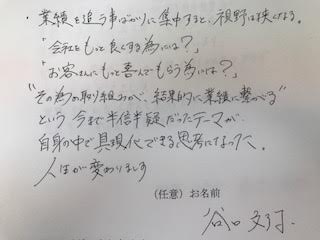 ・業績を追う事ばかりに集中すると、視野は狭くなる。
「会社をもっと良くする為には?」
「お客さんにもっと喜んでもらう為には?」
"その為の取り組みが、結果的に業績に繋がる"
という 今まで半信半疑だったテーマが、
自身の中で具現化できる思考になった。
人生が変わります
(任意)お名前
谷口